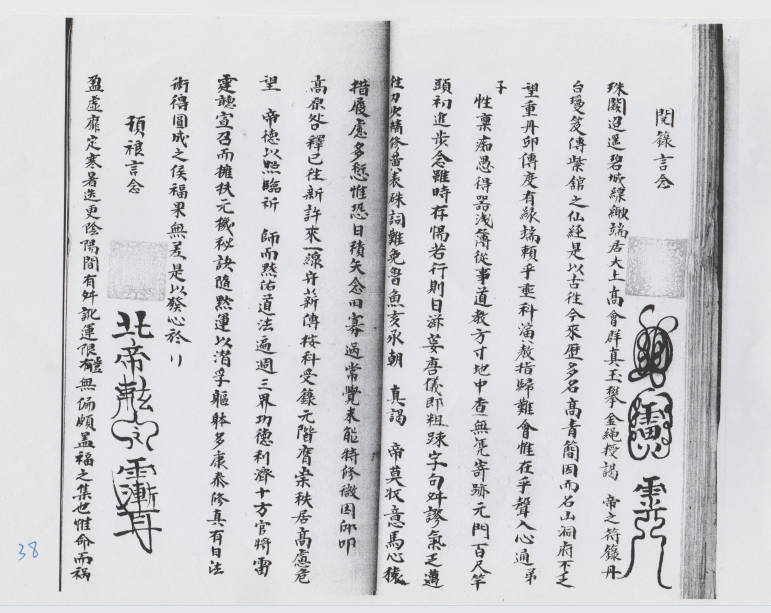 閱籙言念
珠闕迢遥碧城縹緲端居大上高會群真玉檢金繩授謁 帝之符籙丹
台瓊笈傳紫舘之仙經是以古往今來歷多名高青簡因而名山祠府不乏
望重丹邱傳度有緣端頼乎垂科演教指歸難會惟在乎聲入心通弟
子
性稟痴愚得器浅薄從事道教方寸地中查無凭寄跡元門百尺竿
頭初進步念雖時存惕若行則日游晏唐儀即粗踈字句舛謬氣乏邁
往刀少精修黄表硃詞難免魯魚亥豕朝 真謁 帝莫収意馬心猿
措履虚多愆惟恐日積矢念田寡過常覺未能特修微因卬叩
高原咎釋已往新許來一線舟薪傳按科受籙元階膺崇秩居高慮危
望 帝德以照臨祈 師而黙佑道法遍週三界功德利濟十方官將雷
霆聽宣召而擁扶元機秘訣隨黙運以潛孚軀躰多康泰修真有日法
術得圓成之侯福果無差是以發心於
預禳言念
盈虚靡定寒暑迭更陰陽間有舛訛運限軆無偏頗盖福之集也惟命而禍
38